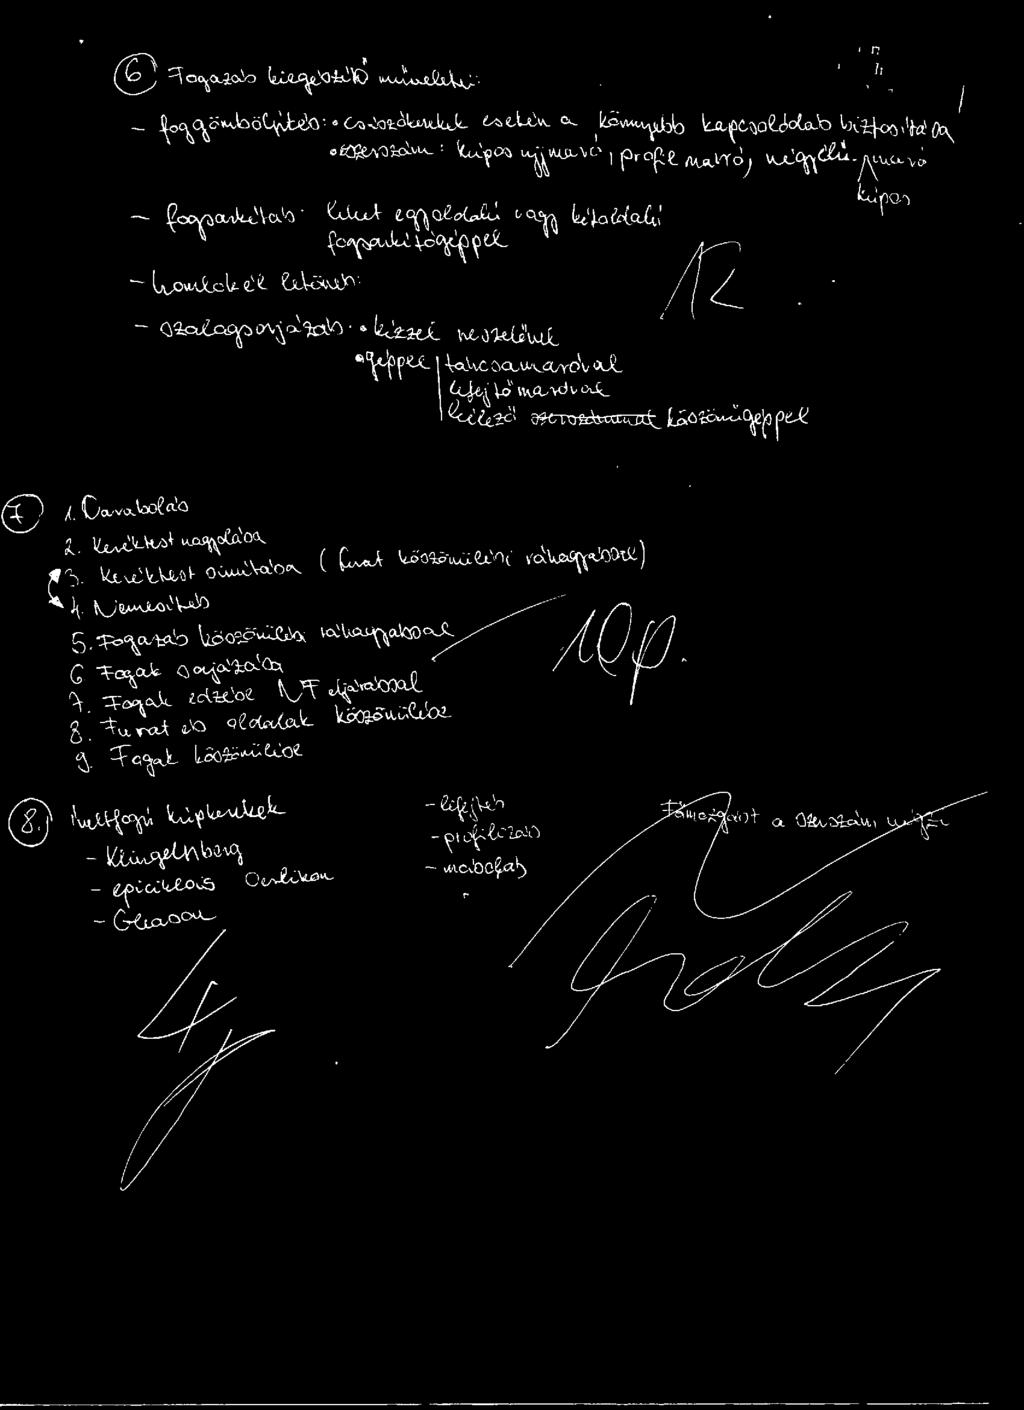 6 Fogazás kiegészítő műveletei:
- foggömbölyítés: • csúszókerekek esetén a könnyebb kapcsolódás biztosítása
• szerszám: kúpos ujjmaró, profil maró, négyélű maró
kúpos
- fogsarkítás: lehet egyoldalú vagy kétoldalú
fogsarkítógéppel
12
- homlokél letörés:
- szalagsorjázás: • kézzel reszelővel
• géppel tárcsamaróval
lefejtőmaróval
köszörűgéppel
7 1. Darabolás
2. Keréktest nagyolása
3. Keréktest simítása (furat köszörülési ráhagyással)
4. Nemesítés
5. Fogazás köszörülési ráhagyással
6 Fogak sorjázása
7. Fogak edzése NF eljárással
8. Furat és oldalak köszörülése
9. Fogak köszörülése
10p.
8. Ívelt fogú kúpkerekek
- Klingelnberg
- epiciklois Oerlikon
- Gleason
- lefejtés
- profilozás
- másolás
a szerszám végzi
4